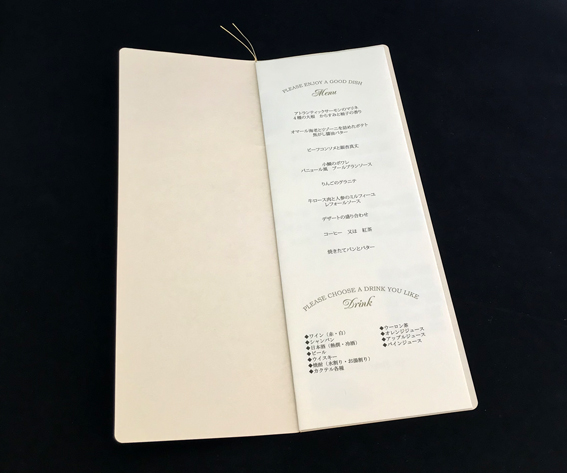 PLEASE ENJOY A GOOD DISH
Menu
アトランティックサーモンのマリネ
4種の大根 からすみと柚子の香り
オマール海老とジゾーニを詰めたポテト
焦がし醤油バター
ビーフコンソメと蝦真丈
小鯛のポワレ
バニョール風 ブールブランソース
りんごのグラニテ
牛ロース肉と人参のミルフィーユ
レフォールソース
デザートの盛り合わせ
コーヒー 又は 紅茶
焼きたてパンとバター
PLEASE CHOOSE A DRINK YOU LIKE
Drink
◆ワイン(赤・白)
◆シャンパン
◆日本酒(熱燗・冷酒)
◆ビール
◆ウイスキー
◆焼酎(水割り・お湯割り)
◆カクテル各種
◆ウーロン茶
◆オレンジジュース
◆アップルジュース
◆パインジュース